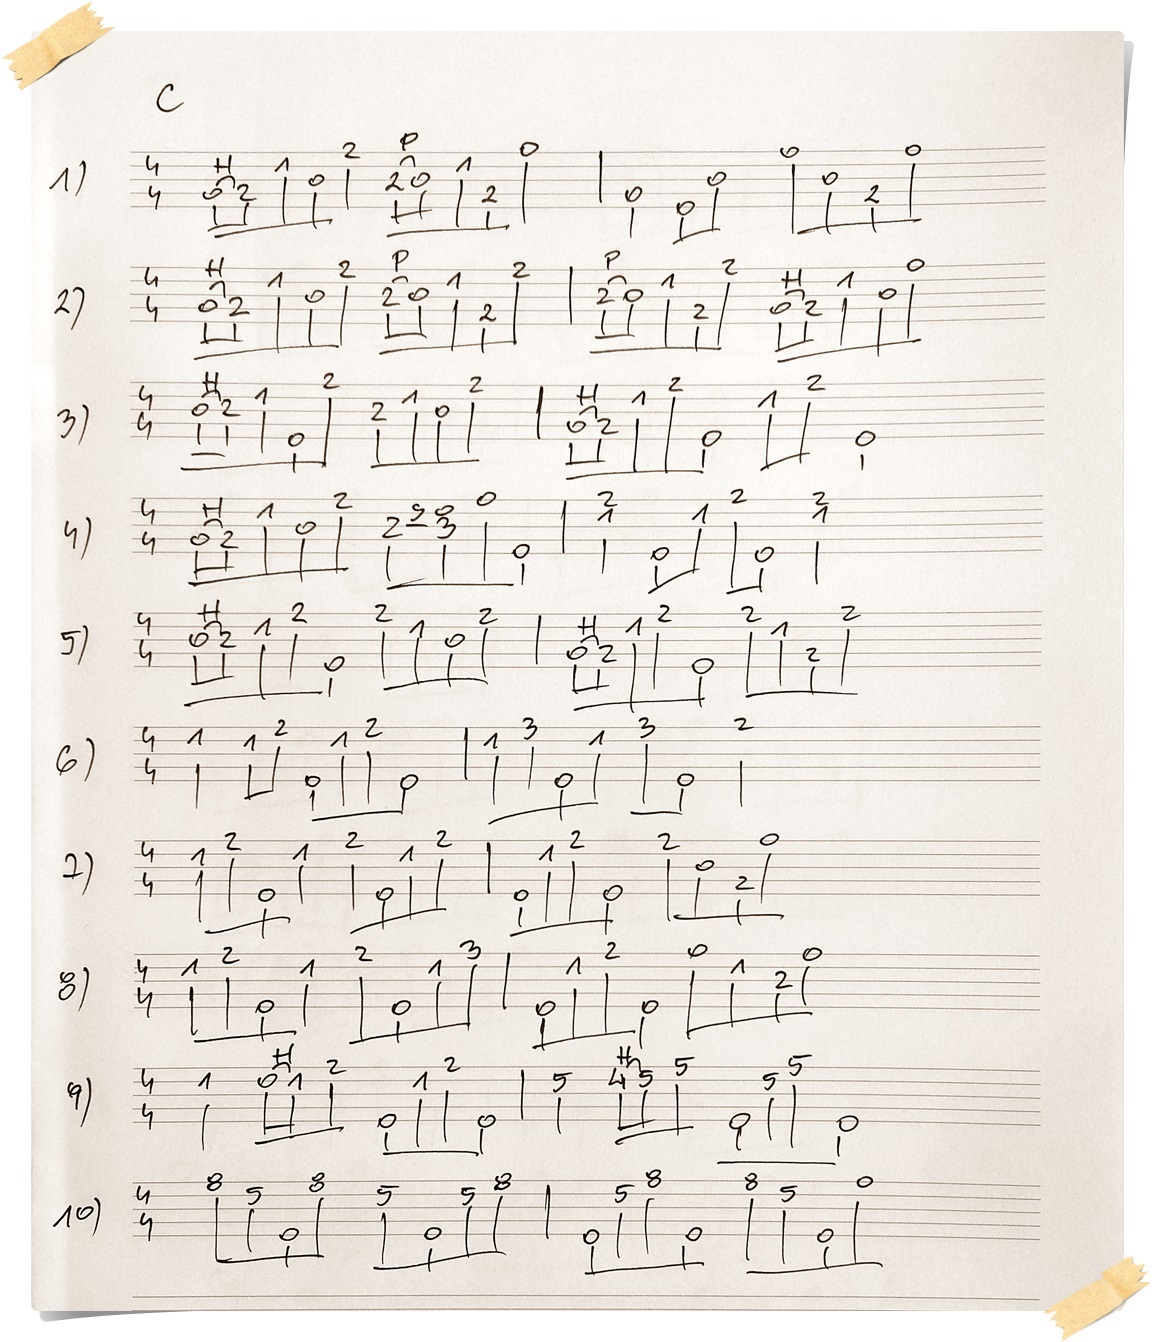 C
H P
1) 4/4 0 2 1 0 2 2 0 1 2 0 | 0 0 0 0 0 2 0
H P P H
2) 4/4 0 2 1 0 2 2 0 1 2 2 | 2 0 1 2 2 0 2 1 0 0
H H
3) 4/4 0 2 1 0 2 2 1 0 2 | 0 2 1 2 0 1 2 0
H
4) 4/4 0 2 1 0 2 2 0 3 0 0 | 2 1 0 1 2 0 2 1
H H
5) 4/4 0 2 1 2 0 2 1 0 2 | 0 2 1 2 0 2 1 2 2
6) 4/4 1 1 2 0 1 2 0 | 1 3 0 1 3 0 2
7) 4/4 1 2 0 1 2 0 1 2 | 0 1 2 0 2 0 2 0
8) 4/4 1 2 0 1 2 0 1 3 | 0 1 2 0 0 1 2 0
H H
9) 4/4 1 0 1 2 0 1 2 0 | 5 4 5 5 0 5 5 0
10) 4/4 8 5 0 8 5 0 5 8 | 0 5 8 0 8 5 0 0